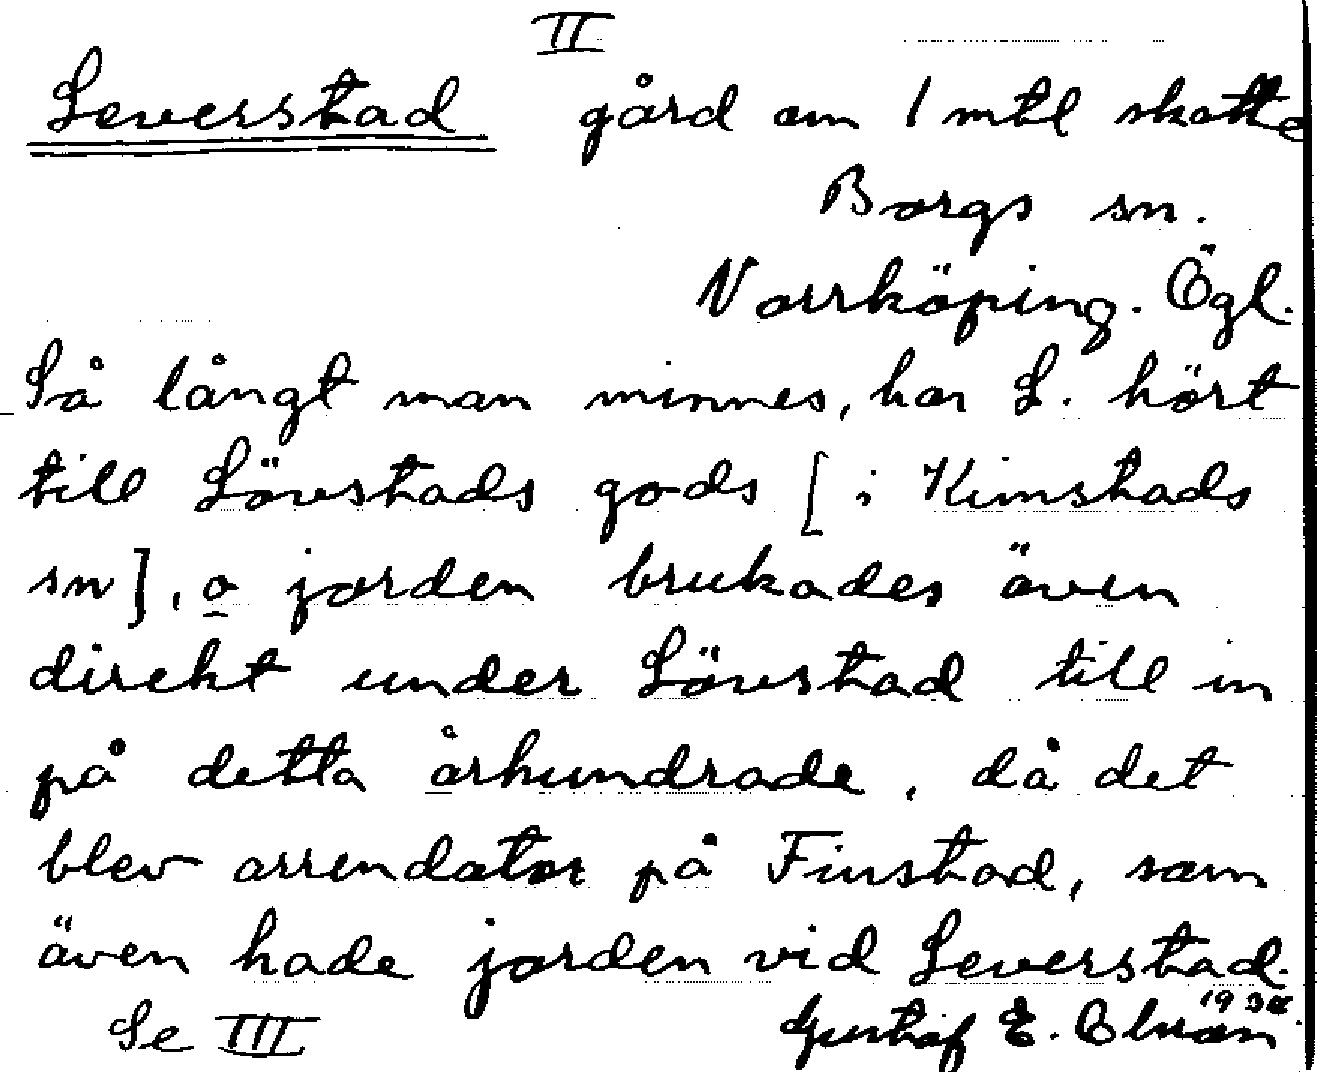 II
Leverstad gård om 1 mtl skatte
Borgs sn.
Norrköping. Ögl.
Så långt man minnes, har L. hört
till Lövstads gods [ i Kimstads
sn ], o jorden brukades även
direkt under Lövstad till in
på detta århundrade, då det
blev arrendator på Finstad, som
även hade jorden vid Leverstad.
Se III Gustaf E.